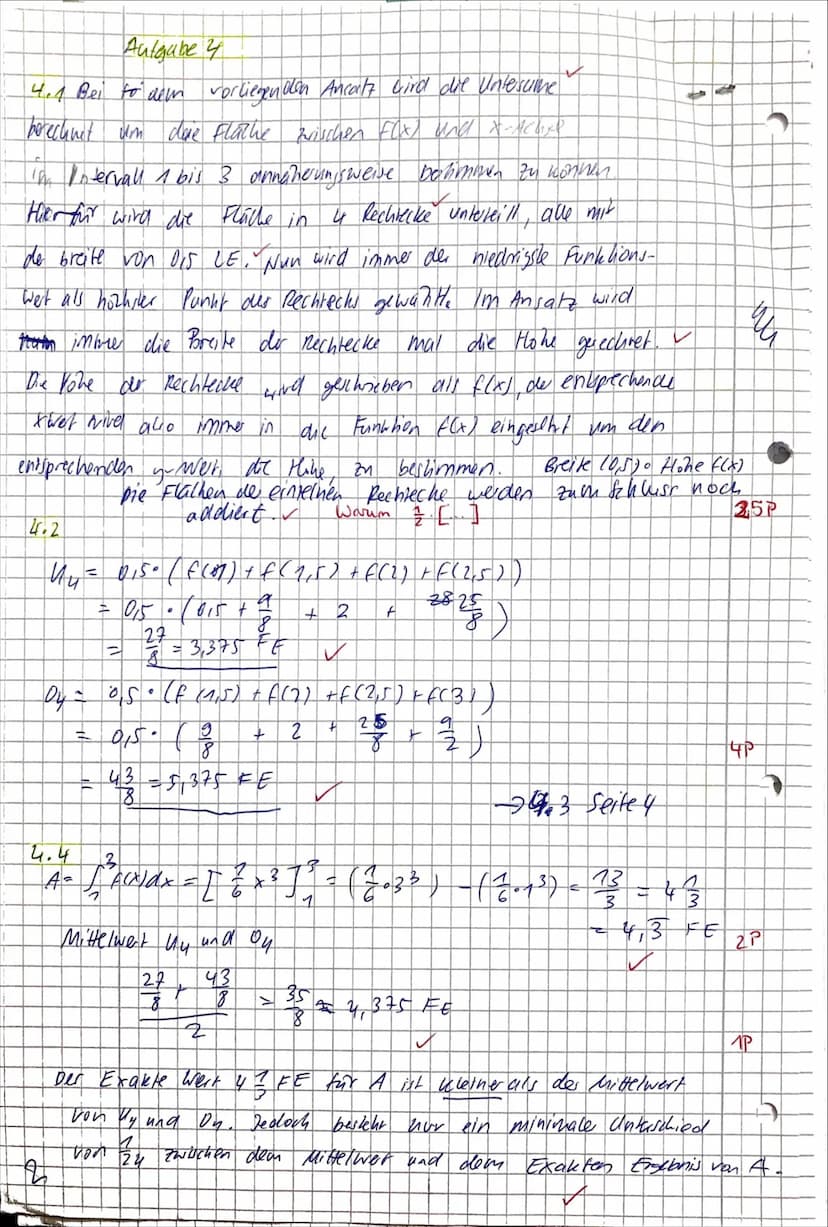 Aufgabe 4
4.1 Bei dem vorliegenden Ansatz wird die Untesume
berechnet um die Fläche zwischen f(x) und x-Achse
im Intervall 1 bis 3 annäherungsweise bestimmen zu können
Hierfür wird die Fläche in 4 Rechtecke unterteilt, alle mit
der breite von 0,5 LE. Nun wird immer der niedrigste Funktions-
wert als höchster Punkt des Rechtecks gewählt. Im Ansatz wird
immer die Breite der Rechtecke mal die Höhe gerechnet.
Die Höhe der Rechtecke wird geschrieben als f(x), der entsprechende
xwert wird also immer in die Funktion f(x) eingesetzt um den
entsprechenden y-Wert, die Höhe, zu bestimmen. Breite (0,5) • Höhe f(x)
Die Flächen der einzelnen Rechtecke werden zum Schluss noch
addiert. Warum 1/2 · [...] 3,5P
4.2
U4 = 0,5 · (f(1) + f(1,5) + f(2) + f(2,5))
= 0,5 · (0,5 + 9/8 + 2 + 25/8)
= 27/8 = 3,375 FE
O4 = 0,5 · (f(1,5) + f(2) + f(2,5) + f(3))
= 0,5 · (9/8 + 2 + 25/8 + 9/2)
4P
= 43/8 = 5,375 FE
→ 4.3 Seite 4
4.4
A = ∫₁³ f(x)dx = [1/6 x³]₁³ = (1/6 · 3³) - (1/6 · 1³) = 13/3 = 4 1/3
= 4,3̅ FE
Mittelwert U4 und O4 2P
(27/8 + 43/8)/2 = 35/8 = 4,375 FE
1P
Der Exakte Wert 4 1/3 FE für A ist kleiner als der Mittelwert
von U4 und O4. Jedoch besteht nur ein minimaler Unterschied
von 1/24 zwischen dem Mittelwert und dem Exakten Ergebnis von A.
2